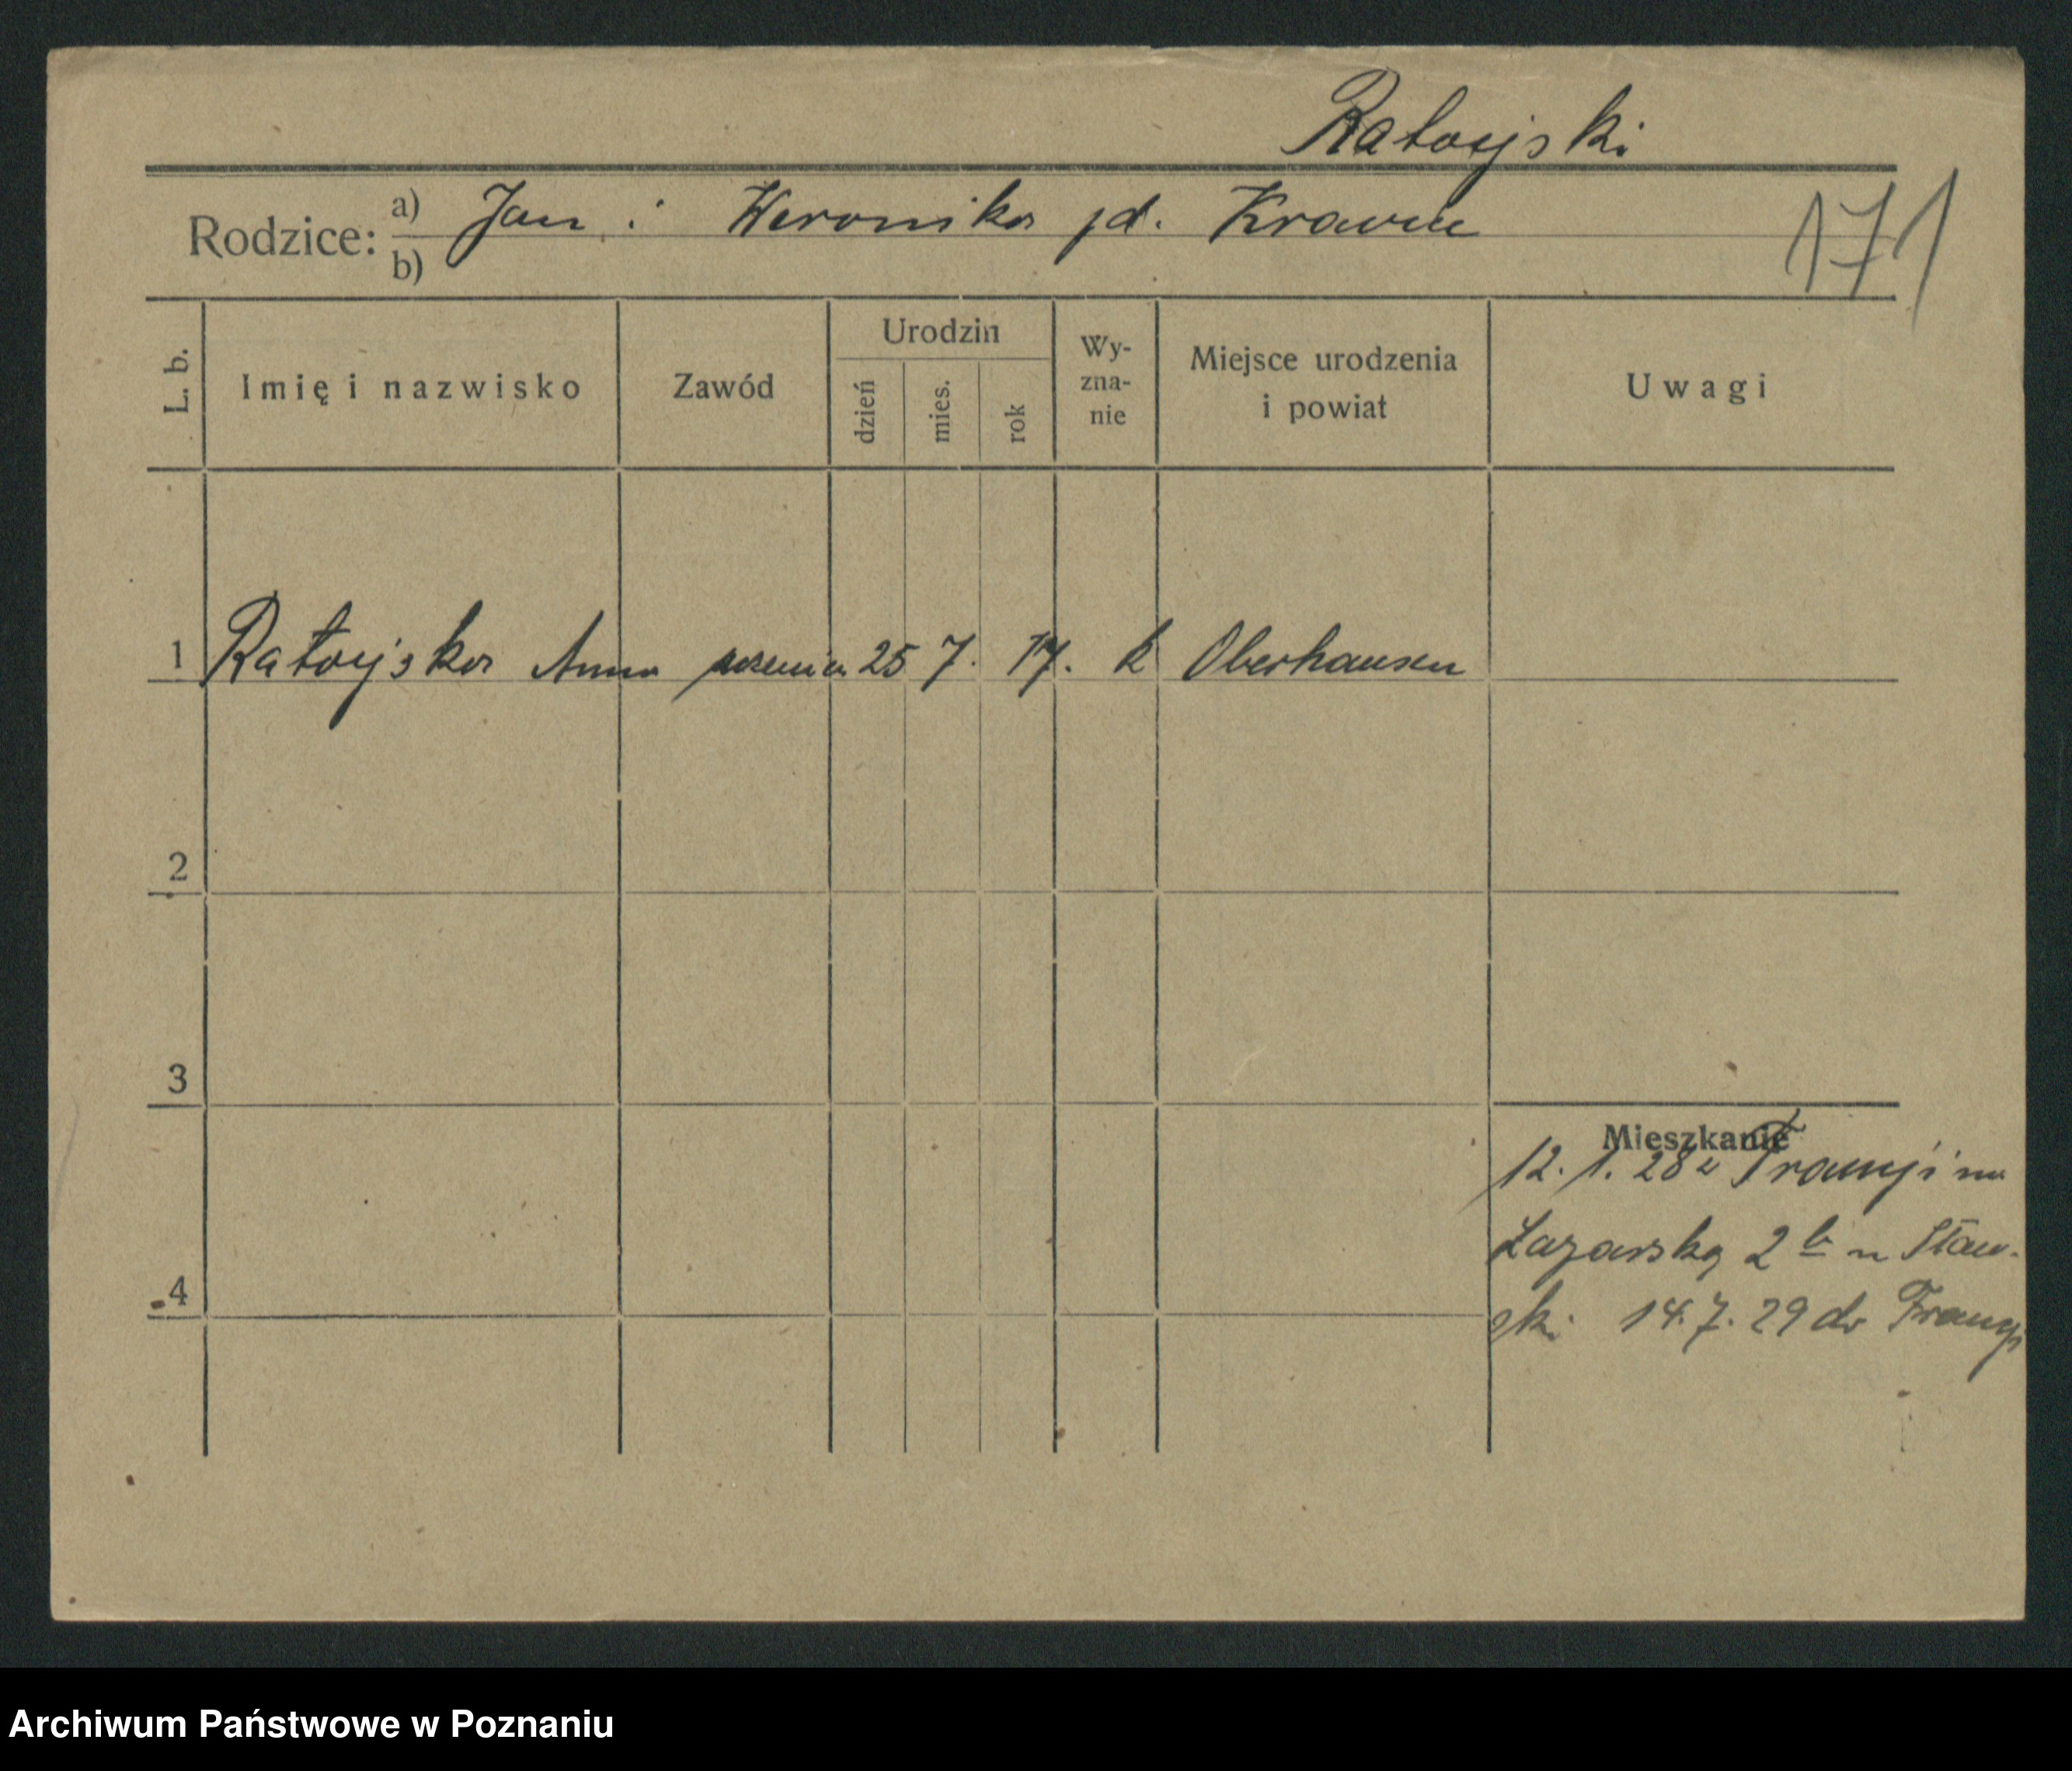 Ratajski
Rodzice: a) Jan i Weronika zd. Krawiec
b)
171
L. b. Imię i nazwisko Zawód Urodzin dzień mies. rok Wy-zna-nie Miejsce urodzenia i powiat Uwagi
1 Ratajska Anna uczenica 25 7. 17. k Oberhausen
2
3
Mieszkanie
12. 1. 28 z Francji na
Łazarską 2 b u Staw-
4
ski 14. 7. 29 do Francji
Archiwum Państwowe w Poznaniu